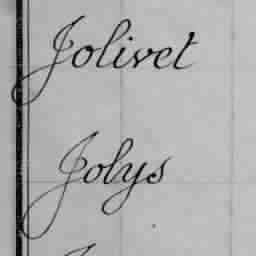 Jolivet
Jolys